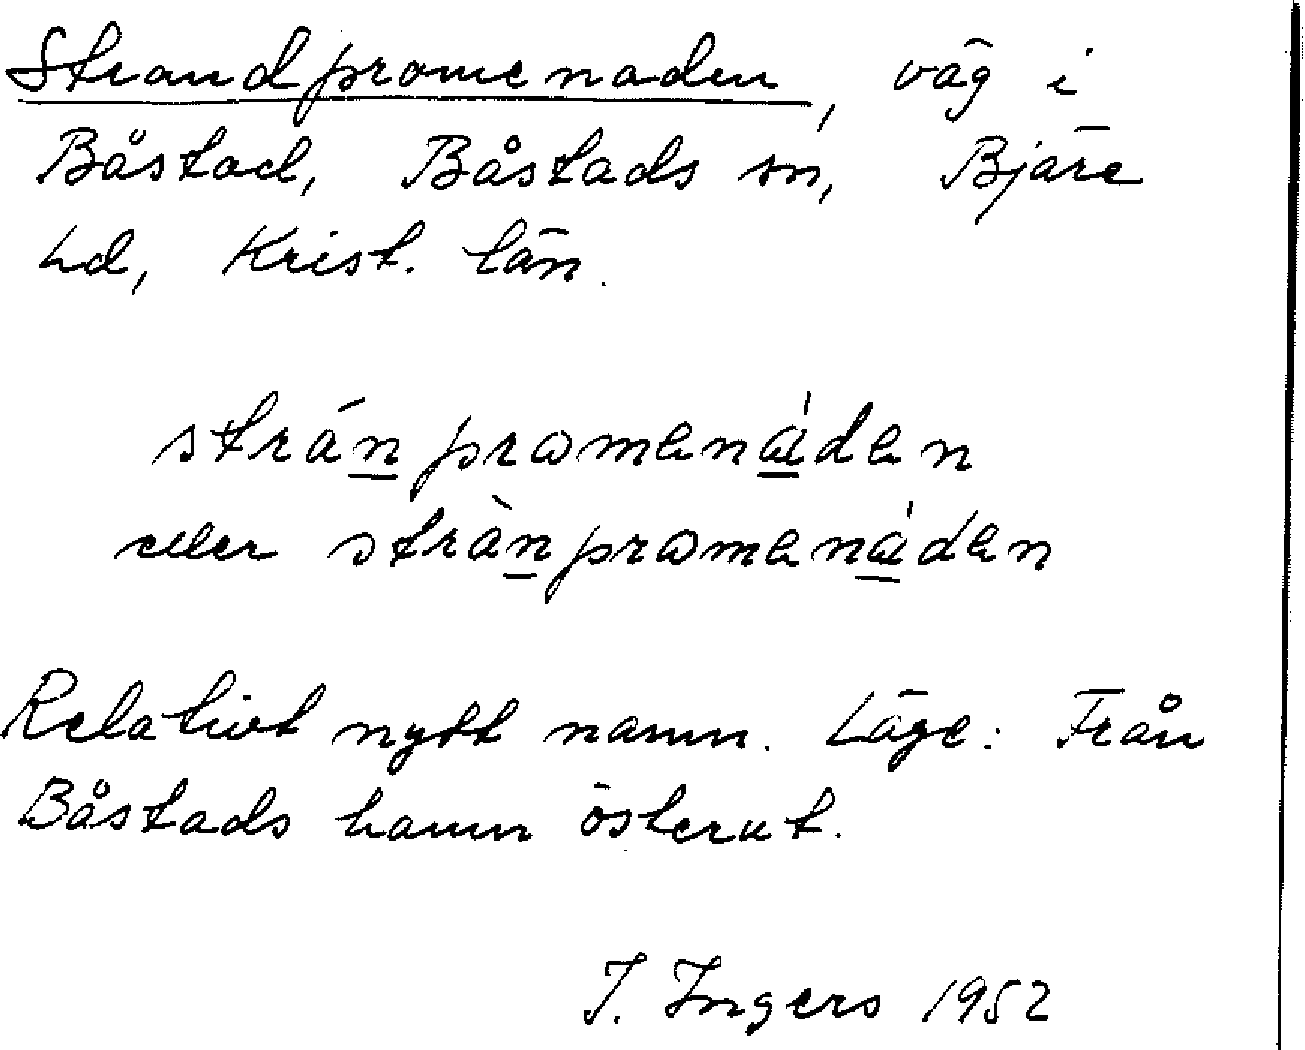 Strandpromenaden, väg i
Båstad, Båstads sn, Bjäre
hd, Krist. län.
strán promenáden
eller strànpromenáden
Relativt nytt namn. Läge: Från
Båstads hamn österut.
I. Ingers 1952